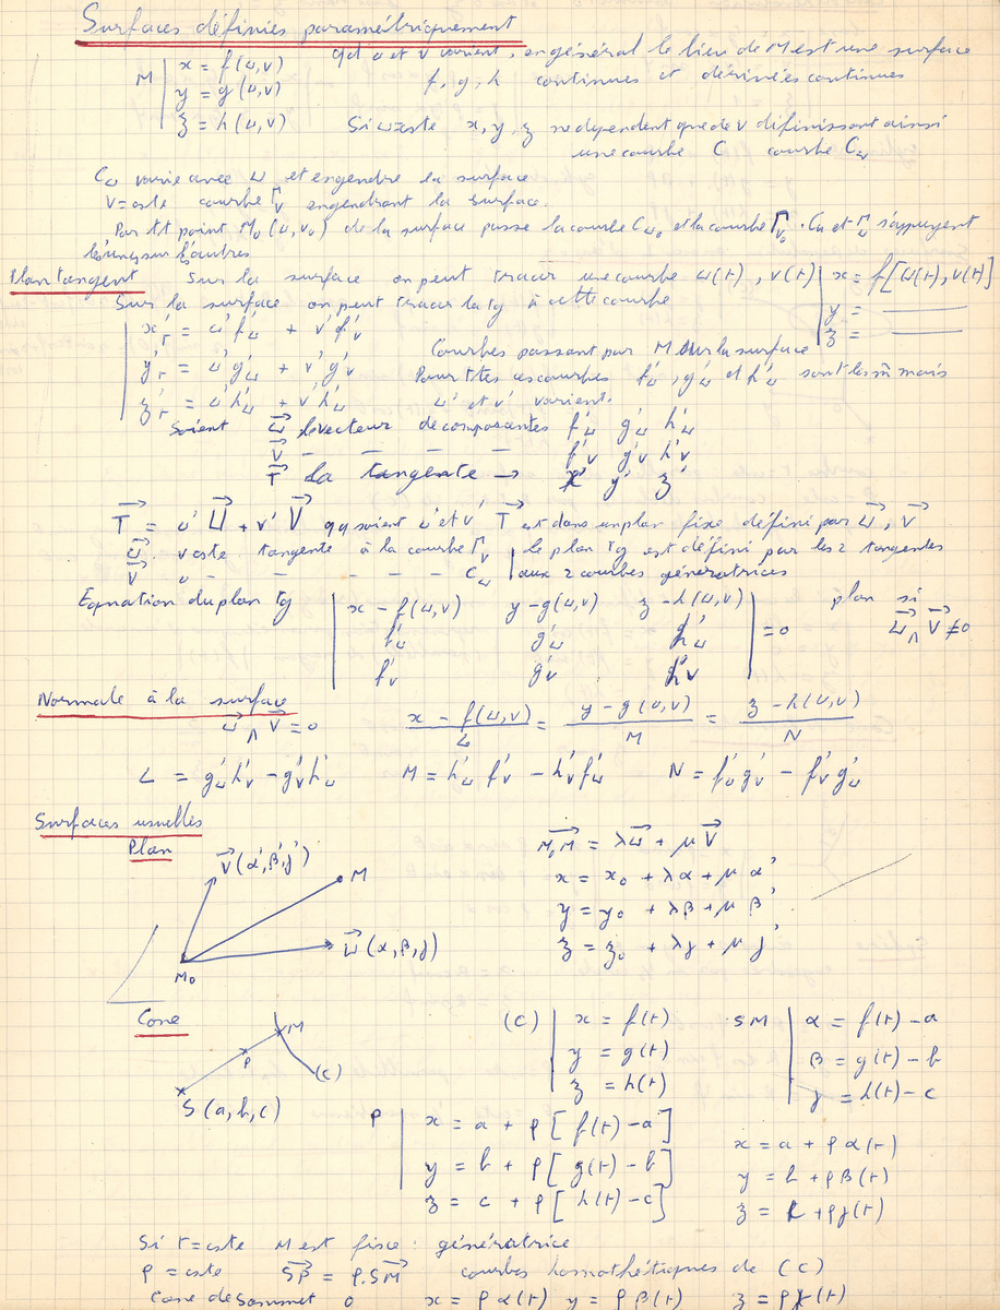 Surfaces définies paramétriquement
M | x = f(u,v) qd u et v varient, en général le lieu de M est une surface
y = g(u,v) f, g, h continues et dérivées continues
z = h(u,v) Si u=cste x, y, z ne dépendent que de v définissant ainsi
une courbe C courbe Cu
Cu varie avec u et engendre la surface
v=cste courbe Γv engendrant la surface.
Par tt point M0 (u0v0) de la surface passe la courbe Cu0 et la courbe Γv0. Cu et Γv s'appuyent
les unes sur les autres
Plan tangent Sur la surface on peut tracer une courbe u(t), v(t) | x = f[u(t), v(t)]
Sur la surface on peut tracer la tg à cette courbe y = ———
z = ———
x't = u'f'u + v'f'v
Courbes passant par M sur la surface
y't = u'g'u + v'g'v Pour ttes ces courbes f'u, g'u et h'u sont les m̂ mais
z't = u'h'u + v'h'u u' et v' varient.
Soient U⃗ le vecteur de composantes f'u g'u h'u
V⃗ — — — — f'v g'v h'v
T⃗ la tangente → x' y' z'
T⃗ = u' U⃗ + v' V⃗ qq soient u' et v' T⃗ est dans un plan fixe défini par U⃗, V⃗
U⃗ . v cste tangente à la courbe Γv | le plan tg est défini par les 2 tangentes
V⃗ u - — — - - - Cu | aux 2 courbes génératrices
Equation du plan tg | x - f(u,v) y - g(u,v) z - h(u,v) | plan si
f'u g'u h'u = 0 U⃗ ∧ V⃗ ≠ 0
f'v g'v h'v
Normale à la surface
U⃗ ∧ V⃗ = 0 (x - f(u,v))/L = (y - g(u,v))/M = (z - h(u,v))/N
L = g'u h'v - g'v h'u M = h'u f'v - h'v f'u N = f'u g'v - f'v g'u
Surfaces usuelles
Plan
V⃗(α',β',γ') M0M⃗ = λU⃗ + μV⃗
M x = x0 + λα + μ α'
y = y0 + λβ + μ β'
U⃗(α,β,γ) z = z0 + λγ + μ γ'
M0
Cone
(C) | x = f(t) SM | α = f(t) - a
M
y = g(t) β = g(t) - b
P
(C) z = h(t) γ = h(t) - c
S(a,b,c)
P | x = a + ρ[f(t) - a]
x = a + ρ α(t)
y = b + ρ[g(t) - b] y = b + ρβ(t)
z = c + ρ[h(t) - c] z = c + ργ(t)
Si t=cste M est fixe : génératrice
ρ = cste SP⃗ = ρ.SM⃗ courbes homothétiques de (C)
Cone de sommet O x = ρ α(t) y = ρ β(t) z = ργ(t)